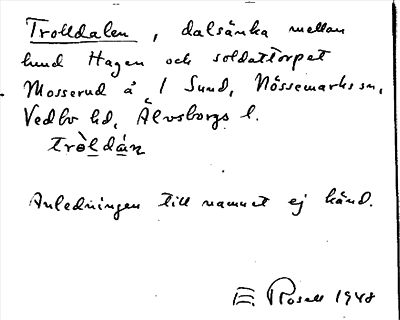 Trolldalen, dalsänka mellan
lund Hagen och soldattorpet
Mosserud å 1 Sund, Nössemarks sn,
Vedbo hd, Älvsborgs l.
tròldán
Anledningen till namnet ej känd.
E. Rosell 1948